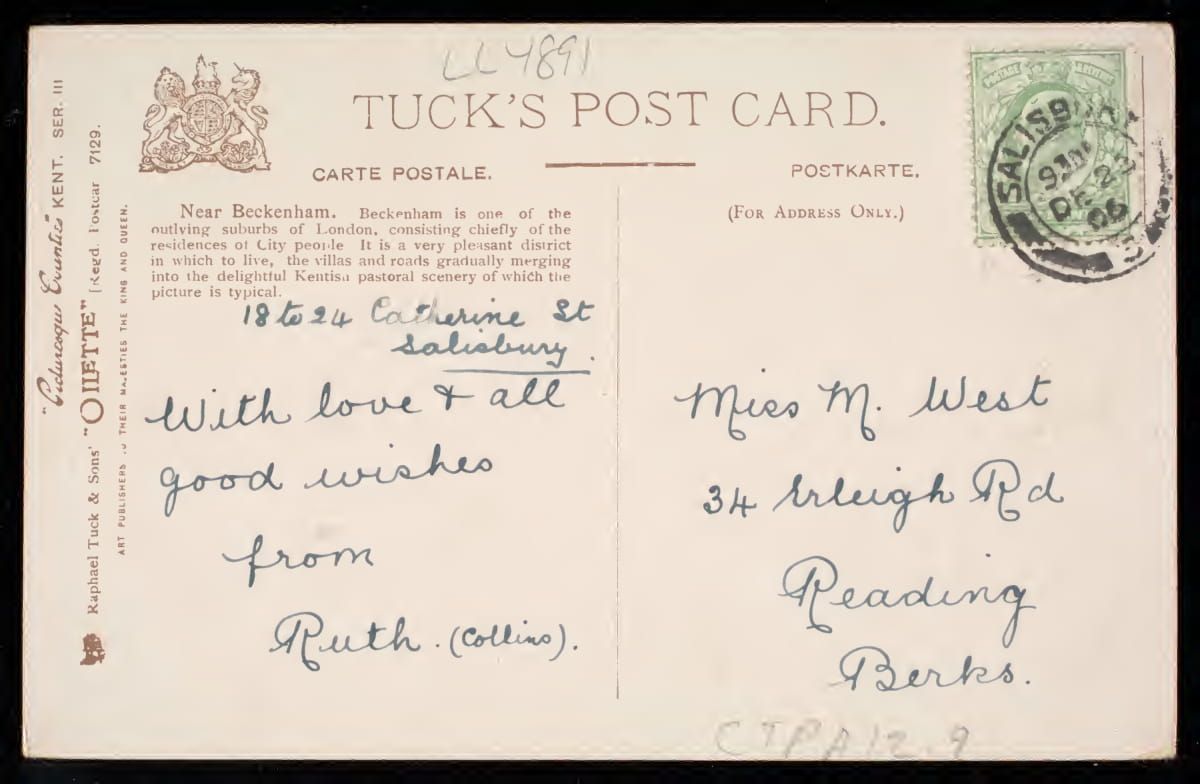 LL4891
TUCK'S POST CARD.
CARTE POSTALE.
POSTKARTE.
(FOR ADDRESS ONLY.)
Near Beckenham. Beckenham is one of the
outlying suburbs of London, consisting chiefly of the
residences of City people It is a very pleasant district
in which to live, the villas and roads gradually merging
into the delightful Kentish pastoral scenery of which the
picture is typical.
18 to 24 Catherine St
Salisbury.
With love & all
good wishes
from
Ruth. (Collins).
Miss M. West
34 Erleigh Rd
Reading
Berks.
"Picturesque Counties" KENT. SER. III
Raphael Tuck & Sons' "OILETTE" [Regd. Postcard 7129.
ART PUBLISHERS TO THEIR MAJESTIES THE KING AND QUEEN.
POSTAGE & REVENUE
SALISBURY
DE 23
06
CTPA12.9